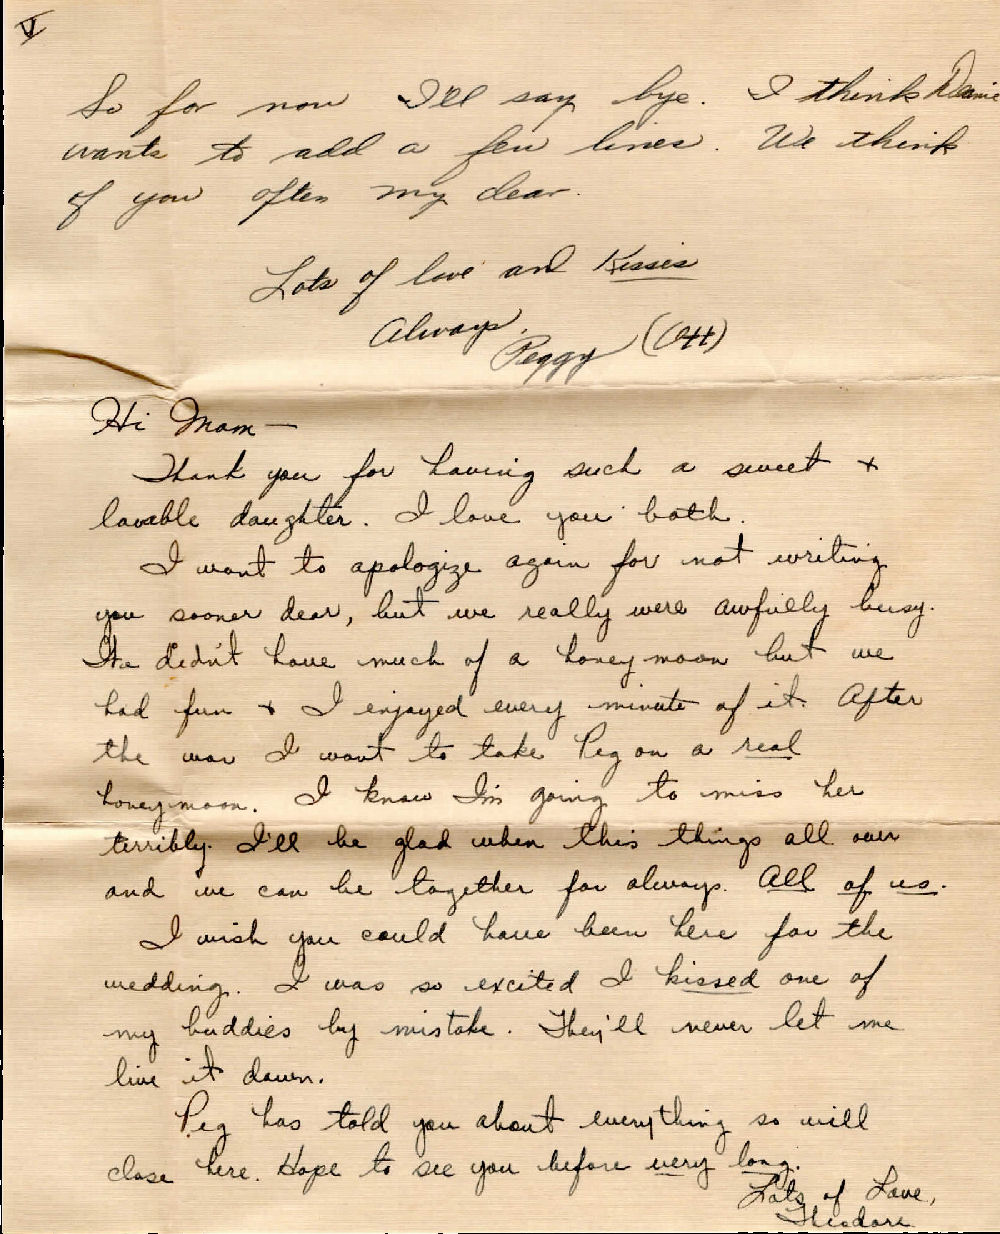 V
So for now I'll say bye. I think
wants to add a few lines. We think
of you often my dear.
Lots of love and Kisses
Always,
Peggy
Hi Mom —
Thank you for having such a sweet +
lovable daughter. I love you both.
I want to apologize again for not writing
you sooner dear, but we really were awfully busy.
We didn't have much of a honeymoon but we
had fun + I enjoyed every minute of it. After
the war I want to take Peg on a real
honeymoon. I know I'm going to miss her
terribly. I'll be glad when this things all over
and we can be together for always. All of us.
I wish you could have been here for the
wedding. I was so excited I kissed one of
my buddies by mistake. They'll never let me
live it down.
Peg has told you about everything so will
close here. Hope to see you before very long.
Lots of Love,
Theodore